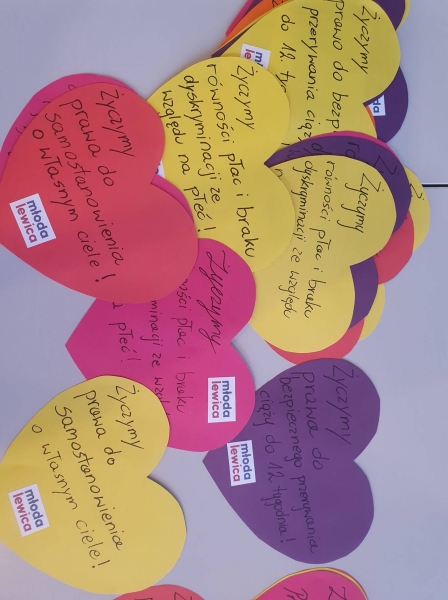 Życzymy
prawo do bezp
przerywania cią
do 12 ty
da
Życzymy
równości płac i braku
dyskryminacji ze
względu na płeć!
mł
lew
Życzymy
równości płac i braku
dyskryminacji ze względu
Życzymy
prawa do
samostanowienia
o własnym ciele!
młoda
lewica
Życzymy
ności płac i braku
minacji ze wzgl
płeć!
młoda
lewica
Życzymy
prawa do
bezpiecznego przerywania
ciąży do 12 tygodnia!
młoda
lewica
Życzymy
prawa do
samostanowienia
o własnym ciele!
młoda
lewica